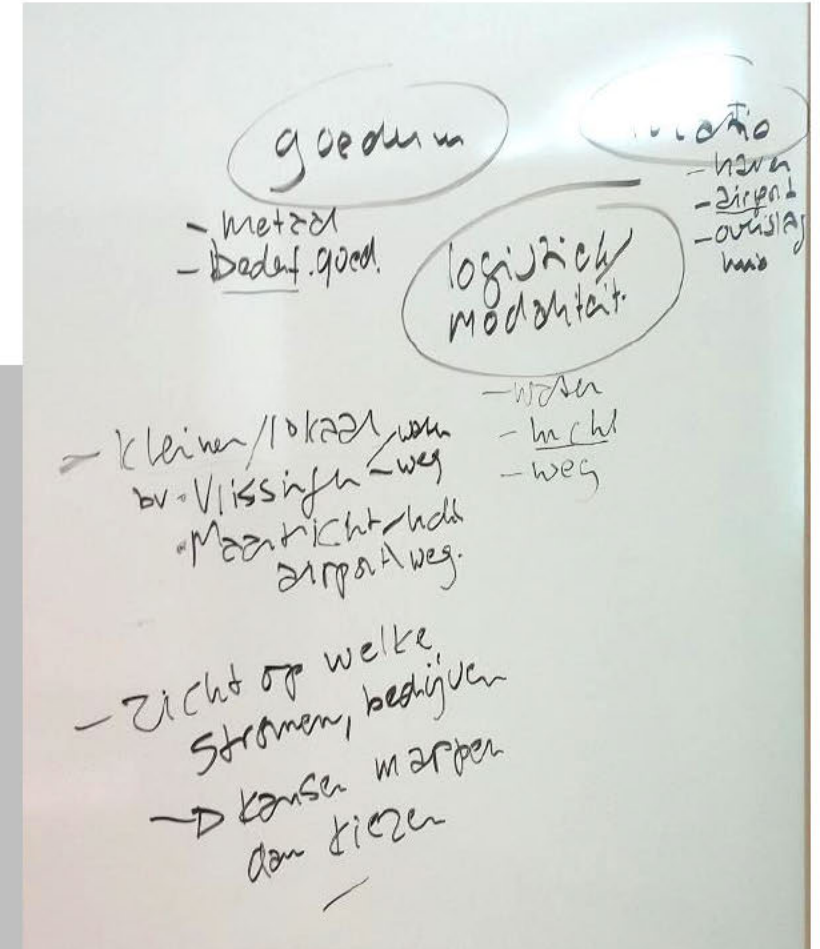 goederen
- metaal
- Bederf. goed.
locatie
- haven
- airport
- overslag
logistiek/
modaliteit.
- water
- lucht
- weg
- kleiner/lokaal
water
bv. Vlissingen - weg
• Maastricht lucht
airport weg.
- zicht op welke
stromen, bedrijven
→ kansen mappen
dan kiezen